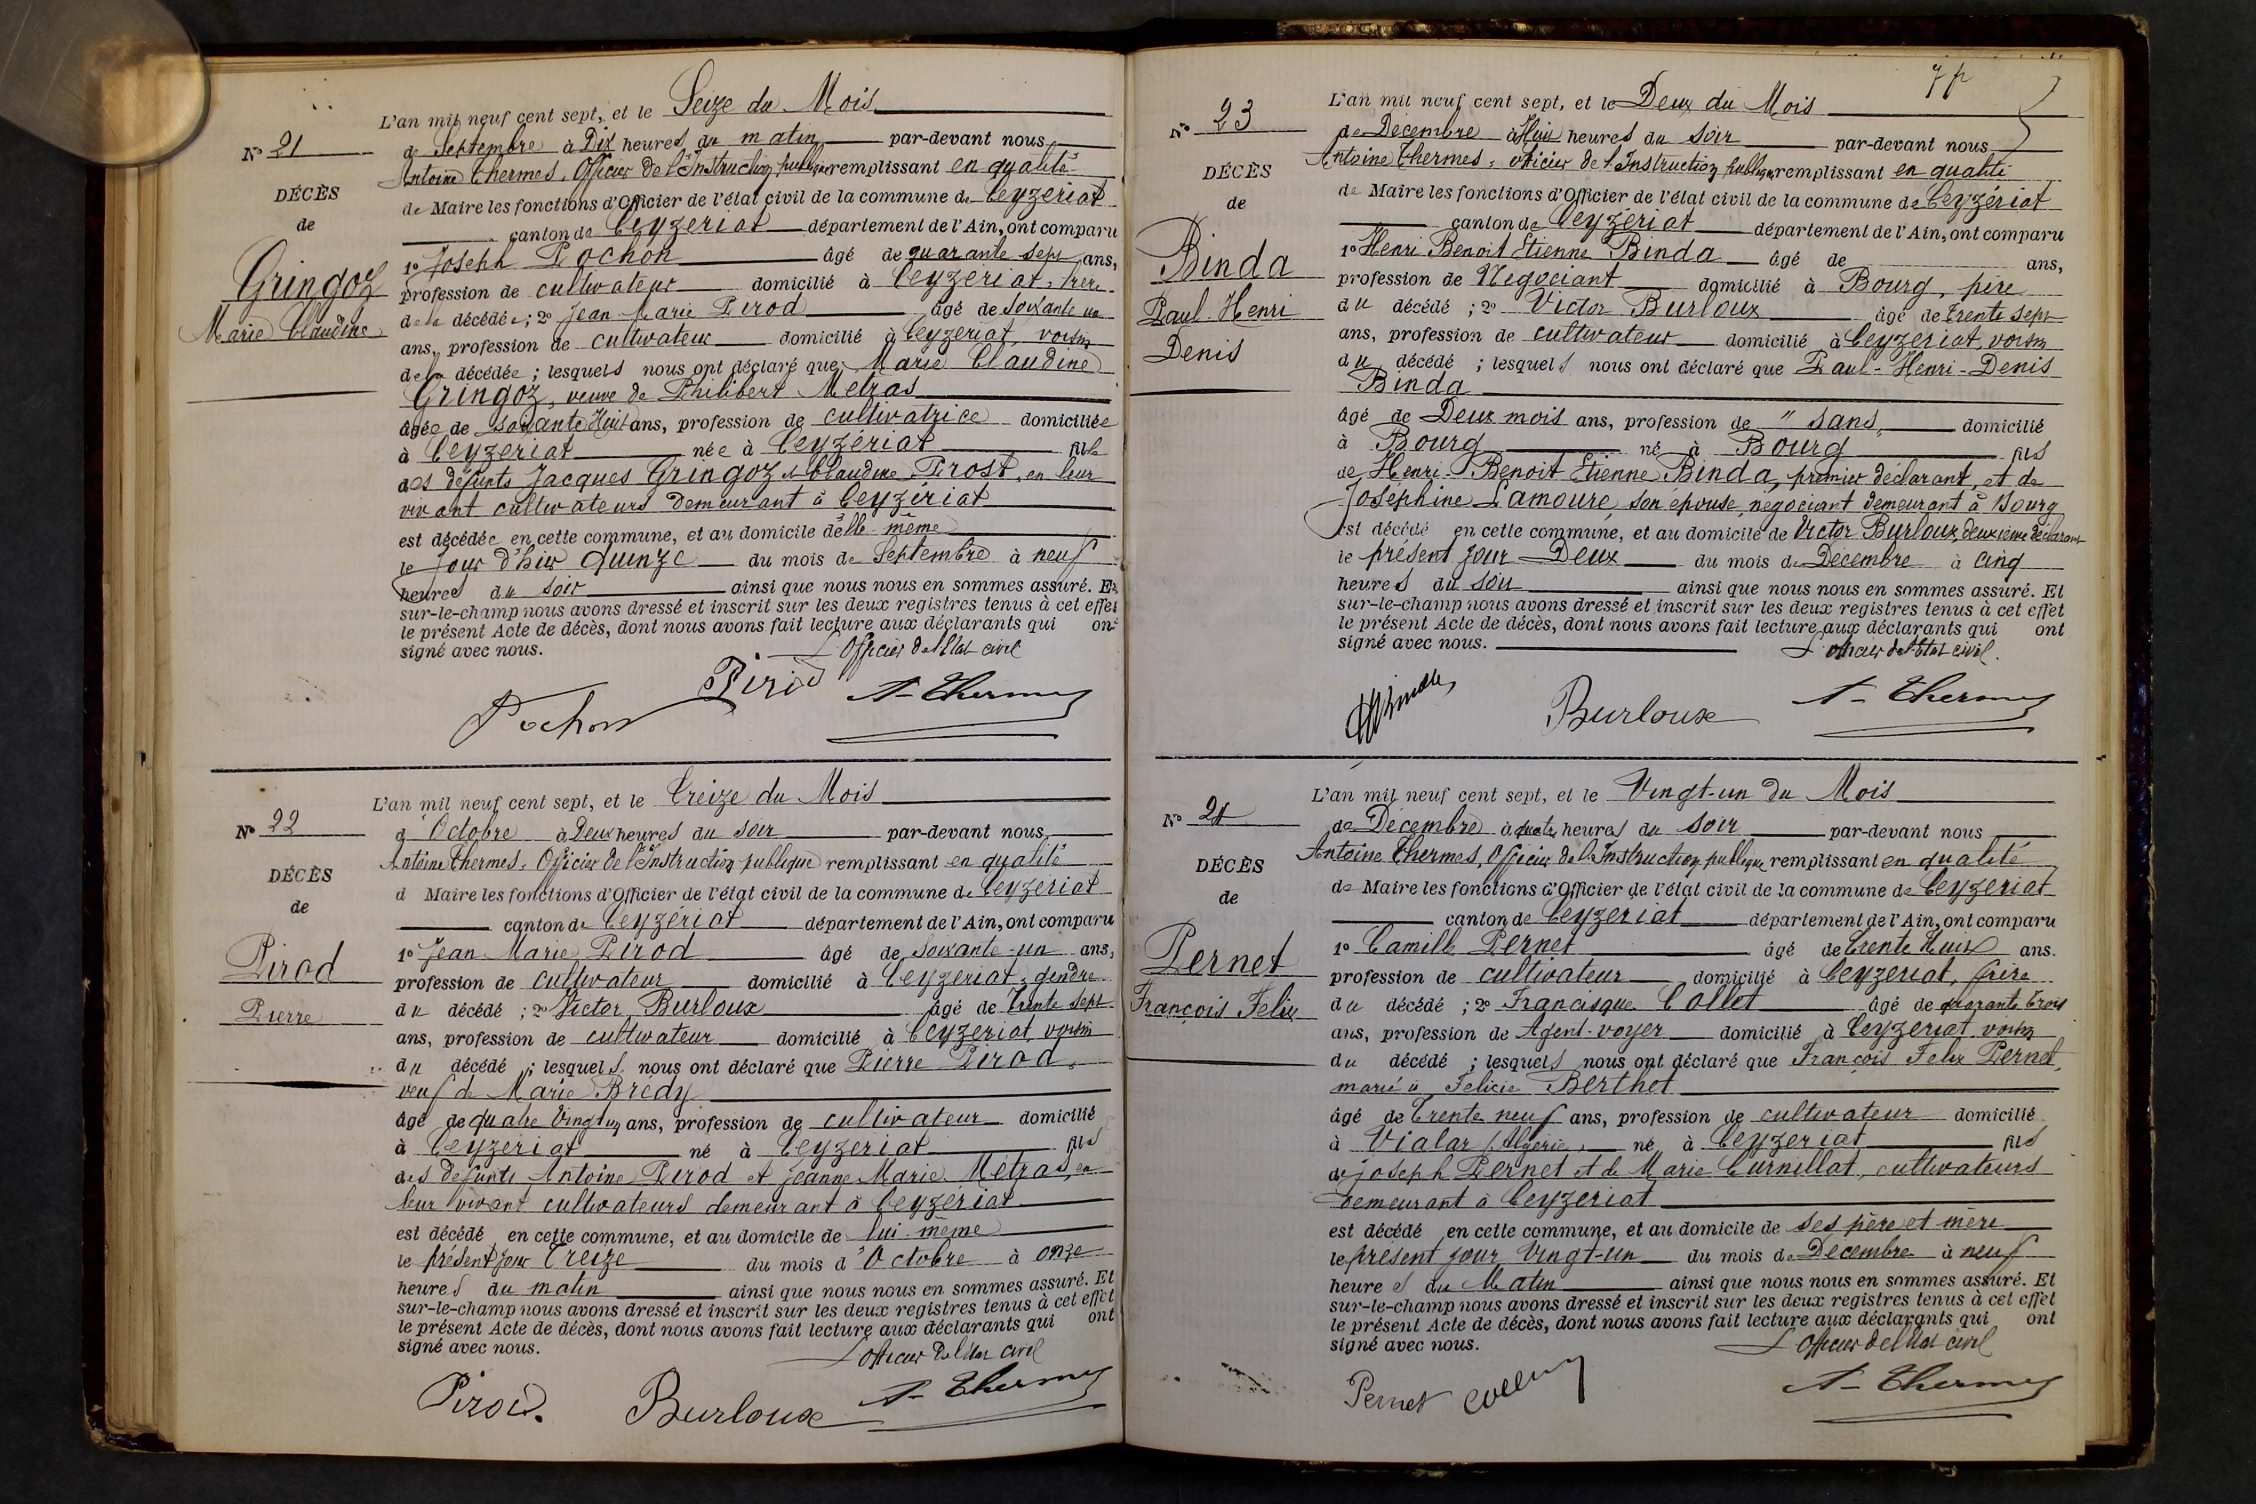 L'an mil neuf cent sept, et le Seize du Mois
N° 21
de Septembre à Dix heures du matin par-devant nous
Antoine Thermes, Officier de l'Instruction publique remplissant en qualité
DÉCÈS
de Maire les fonctions d'Officier de l'état civil de la commune de Ceyzeriat
de
canton de Ceyzeriat département de l'Ain, ont comparu
Gringoz
Marie Claudine
1° Joseph Pochon âgé de quarante sept ans,
profession de cultivateur domicilié à Ceyzeriat, frère
de la décédée; 2° Jean Marie Pirod âgé de soixante un
ans, profession de cultivateur domicilié à Ceyzeriat, voisin
de la décédée; lesquels nous ont déclaré que Marie Claudine
Gringoz, veuve de Philibert Metras
âgée de soixante Huit ans, profession de cultivatrice domiciliée
à Ceyzeriat née à Ceyzériat fille
des défunts Jacques Gringoz et Claudine Pirost, en leur
vivant cultivateurs demeurant à Ceyzériat
est décédée en cette commune, et au domicile d'elle même
le jour d'hier quinze du mois de Septembre à neuf
heures du soir ainsi que nous nous en sommes assuré. Et
sur-le-champ nous avons dressé et inscrit sur les deux registres tenus à cet effet
le présent Acte de décès, dont nous avons fait lecture aux déclarants qui ont
signé avec nous. L'Officier de l'Etat civil
Pochon Pirod A- Thermes
L'an mil neuf cent sept, et le Treize du Mois
N° 22
d'Octobre à Deux heures du soir par-devant nous,
Antoine Thermes, Officier de l'Instruction publique remplissant en qualité
DÉCÈS
d Maire les fonctions d'Officier de l'état civil de la commune de Ceyzeriat
de
canton de Ceyzériat département de l'Ain, ont comparu
Pirod
Pierre
1° Jean Marie Pirod âgé de soixante-un ans,
profession de cultivateur domicilié à Ceyzeriat, gendre
du décédé; 2° Victor Burloux âgé de Trente sept
ans, profession de cultivateur domicilié à Ceyzeriat, voisin
du décédé; lesquels nous ont déclaré que Pierre Pirod,
veuf de Marie Bredy
âgé de quatre Vingt un ans, profession de cultivateur domicilié
à Ceyzériat né à Ceyzeriat fils
des défunts Antoine Pirod et Jeanne Marie Métras, en
leur vivant cultivateurs demeurant à Ceyzériat
est décédé en cette commune, et au domicile de lui même
le présent jour Treize du mois d'Octobre à onze
heures du matin ainsi que nous nous en sommes assuré. Et
sur-le-champ nous avons dressé et inscrit sur les deux registres tenus à cet effet
le présent Acte de décès, dont nous avons fait lecture aux déclarants qui ont
signé avec nous. L'officier de l'Etat civil
Pirod. Burloux A- Thermes
L'an mil neuf cent sept, et le Deux du Mois
N° 23
de Décembre à Huit heures du soir par-devant nous
Antoine Thermes, officier de l'Instruction publique remplissant en qualité
DÉCÈS
de Maire les fonctions d'Officier de l'état civil de la commune de Ceyzériat
de
canton de Ceyzériat département de l'Ain, ont comparu
Binda
Paul-Henri
Denis
1° Henri Benoit Etienne Binda âgé de ans,
profession de Négociant domicilié à Bourg, père
du décédé; 2° Victor Burloux âgé de Trente sept
ans, profession de cultivateur domicilié à Ceyzeriat, voisin
du décédé; lesquels nous ont déclaré que Paul-Henri-Denis
Binda
âgé de Deux mois ans, profession de " sans, domicilié
à Bourg né à Bourg fils
de Henri-Benoit Etienne Binda, premier déclarant, et de
Joséphine Lamoure, son épouse, négociant demeurant à Bourg
est décédé en cette commune, et au domicile de Victor Burloux, deuxième déclarant
le présent jour Deux du mois de Décembre à cinq
heures du soir ainsi que nous nous en sommes assuré. Et
sur-le-champ nous avons dressé et inscrit sur les deux registres tenus à cet effet
le présent Acte de décès, dont nous avons fait lecture aux déclarants qui ont
signé avec nous. L'officier de l'Etat civil.
HBinda Burloux A- Thermes
L'an mil neuf cent sept, et le Vingt-un du Mois
N° 24
de Décembre à quatre heures du soir par-devant nous
Antoine Thermes, Officier de l'Instruction publique remplissant en qualité
DÉCÈS
de Maire les fonctions d'Officier de l'état civil de la commune de Ceyzeriat
de
canton de Ceyzeriat département de l'Ain, ont comparu
Pernet
François Felix
1° Camille Pernet âgé de Trente Huit ans.
profession de cultivateur domicilié à Ceyzeriat, frère
du décédé; 2° Francisque Collet âgé de quarante trois
ans, profession de Agent-voyer domicilié à Ceyzeriat, voisin
du décédé; lesquels nous ont déclaré que François Felix Pernet,
marié à Felicie Berthet
âgé de Trente neuf ans, profession de cultivateur domicilié
à Vialar (Algérie), né à Ceyzeriat fils
de Joseph Pernet et de Marie Curnillat, cultivateurs
demeurant à Ceyzeriat
est décédé en cette commune, et au domicile de ses père et mère
le présent jour Vingt-un du mois de Décembre à neuf
heures du Matin ainsi que nous nous en sommes assuré. Et
sur-le-champ nous avons dressé et inscrit sur les deux registres tenus à cet effet
le présent Acte de décès, dont nous avons fait lecture aux déclarants qui ont
signé avec nous. L'Officier de l'Etat civil
Pernet Collet A- Thermes